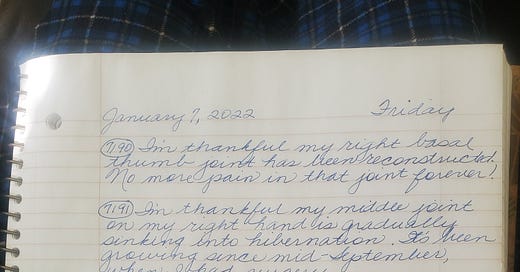 January 7, 2022 Friday
7190 I'm thankful my right basal
thumb joint has been reconstructed.
No more pain in that joint forever!
7191 I'm thankful my middle joint
on my right hand is gradually
sinking into hibernation. It's been
growing since mid-September,
when I had surgery